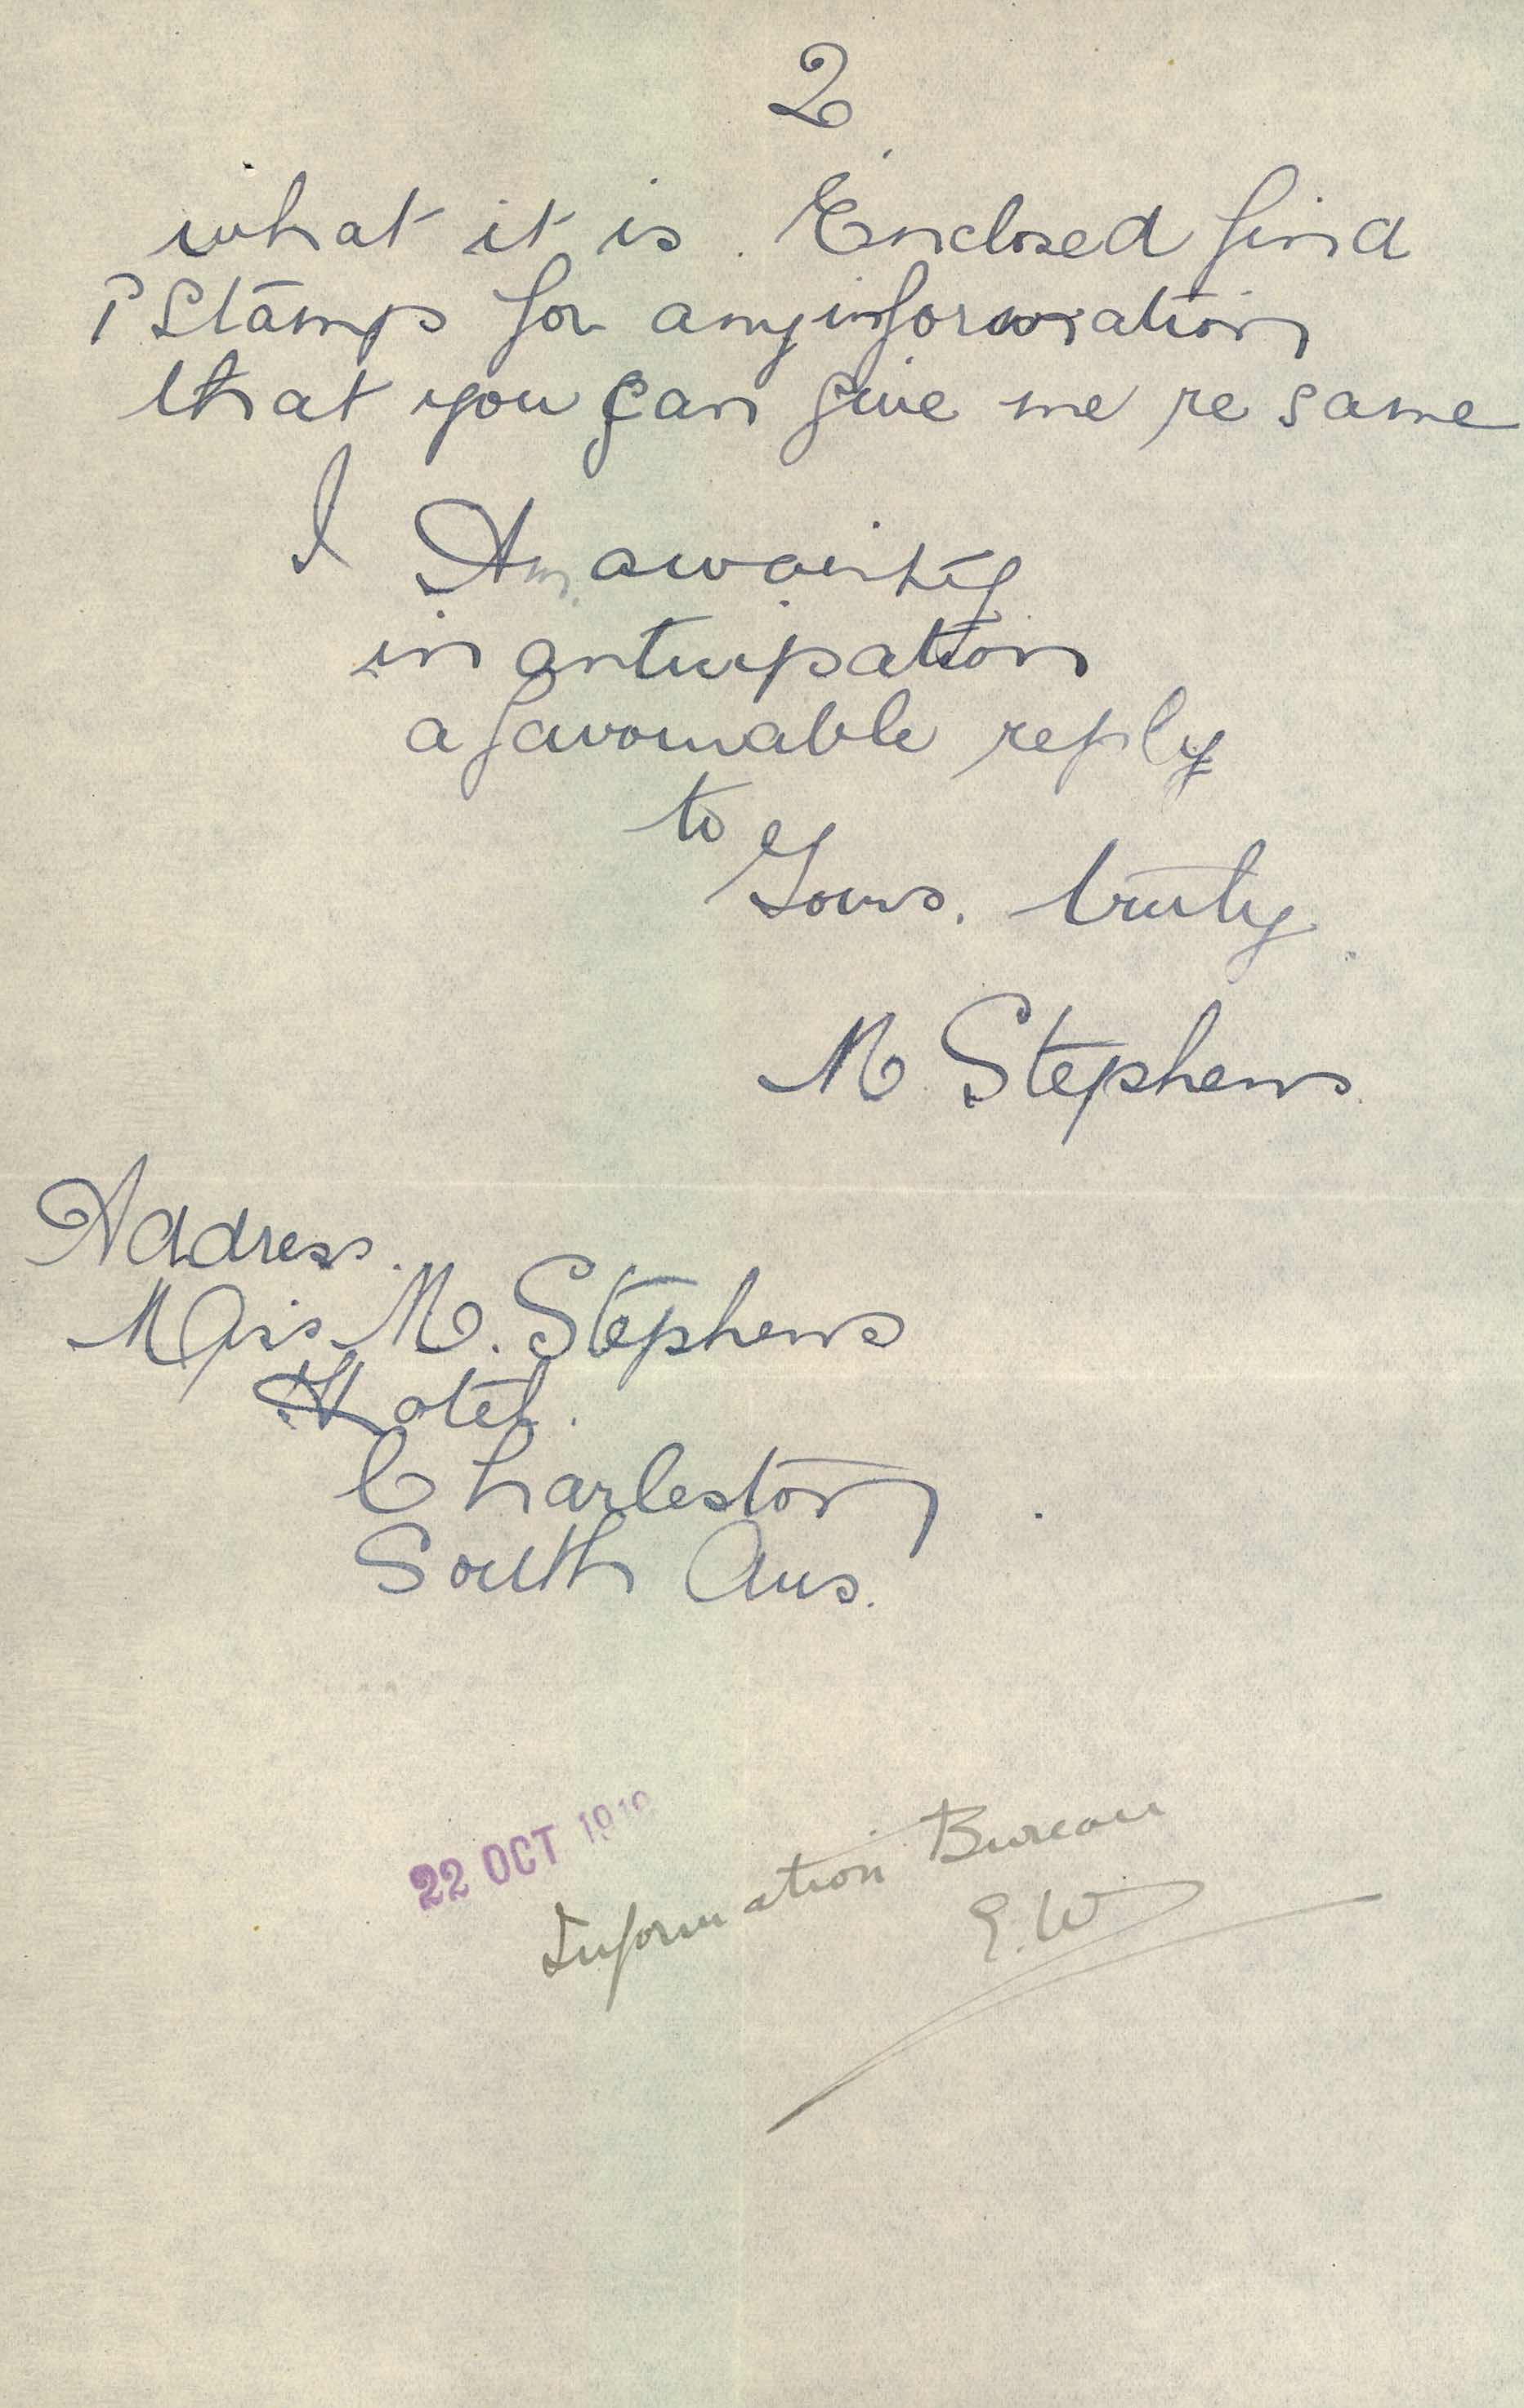 2
what it is. Enclosed find
P Stamps for any information
that you can give me re same
I Am awaitg
in anticipation
a favourable reply
to
Yours. truly.
M Stephens.
Address.
Miss M. Stephens
Hotel.
Charleston
South Aus.
22 OCT 1919
Information Bureau
E.W